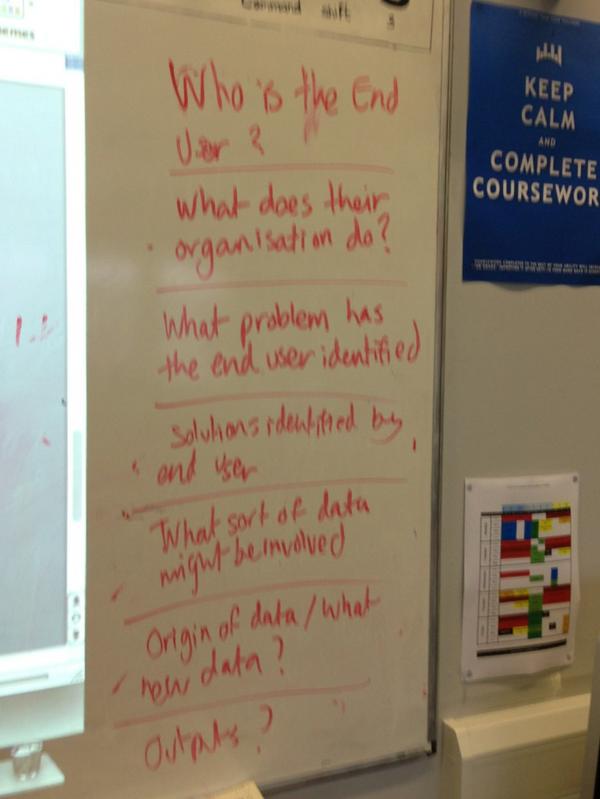 emes
Command shift
Who is the End
User ?
What does their
organisation do?
What problem has
the end user identified
solutions identified by
end user
What sort of data
might be involved
Origin of data / What
new data ?
Outputs ?
KEEP
CALM
AND
COMPLETE
COURSEWOR